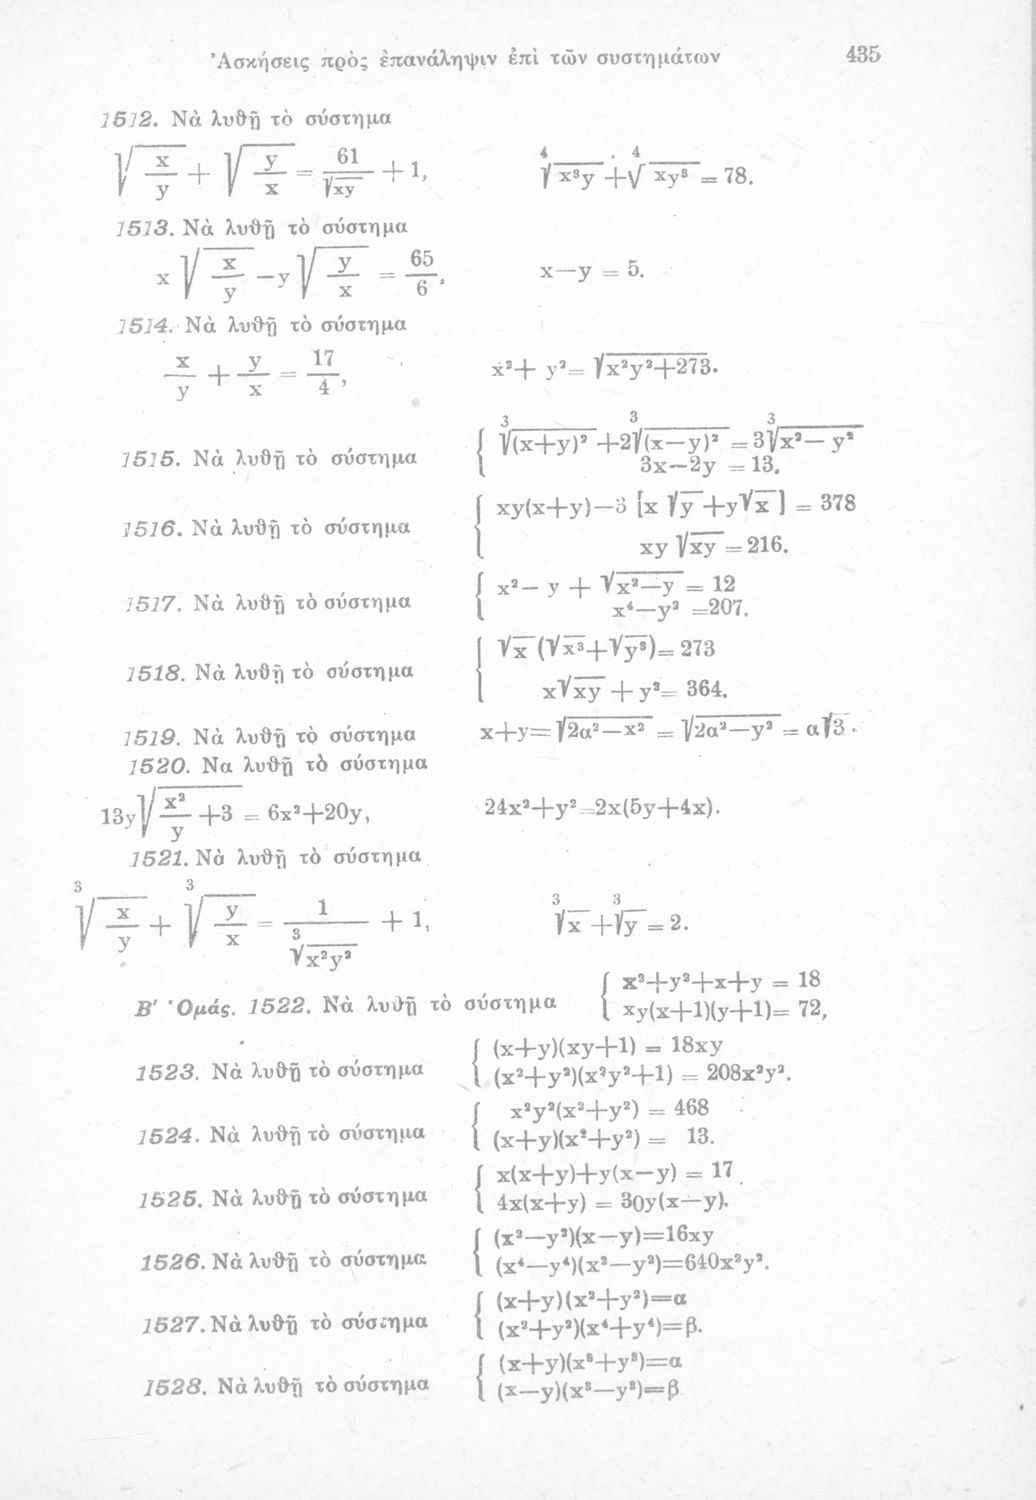 Ἀσκήσεις πρὸς ἐπανάληψιν ἐπὶ τῶν συστημάτων 435
1512. Νὰ λυθῇ τὸ σύστημα
√(x/y) + √(y/x) = 61/√(xy) + 1, ⁴√(x³y) + ⁴√(xy³) = 78.
1513. Νὰ λυθῇ τὸ σύστημα
x√(x/y) — y√(y/x) = 65/6, x—y = 5.
1514. Νὰ λυθῇ τὸ σύστημα
x/y + y/x = 17/4, x²+ y² = √(x²y²+273).
1515. Νὰ λυθῇ τὸ σύστημα { ³√(x+y)² +2³√(x—y)² = 3³√(x²—y²)
3x—2y = 13.
1516. Νὰ λυθῇ τὸ σύστημα { xy(x+y)—3 [x √y +y√x ] = 378
xy √(xy) = 216.
1517. Νὰ λυθῇ τὸ σύστημα { x²— y + √(x²—y) = 12
x⁴—y² =207.
1518. Νὰ λυθῇ τὸ σύστημα { √x (√x³+√y³)= 273
x√(xy) + y²= 364.
1519. Νὰ λυθῇ τὸ σύστημα x+y= √(2α²—x²) = √(2α²—y²) = α√3.
1520. Να λυθῇ τὸ σύστημα
13y√(x²/y +3) = 6x²+20y, 24x²+y²=2x(5y+4x).
1521. Νὰ λυθῇ τὸ σύστημα
³√(x/y) + ³√(y/x) = 1/³√(x²y²) + 1, ³√x + ³√y = 2.
Β′ Ὁμάς. 1522. Νὰ λυθῇ τὸ σύστημα { x²+y²+x+y = 18
xy(x+1)(y+1)= 72,
1523. Νὰ λυθῇ τὸ σύστημα { (x+y)(xy+1) = 18xy
(x²+y²)(x²y²+1) = 208x²y².
1524. Νὰ λυθῇ τὸ σύστημα { x²y²(x²+y²) = 468
(x+y)(x²+y²) = 13.
1525. Νὰ λυθῇ τὸ σύστημα { x(x+y)+y(x—y) = 17
4x(x+y) = 30y(x—y).
1526. Νὰ λυθῇ τὸ σύστημα { (x²—y²)(x—y)=16xy
(x⁴—y⁴)(x²—y²)=640x²y².
1527. Νὰ λυθῇ τὸ σύστημα { (x+y)(x²+y²)=α
(x²+y²)(x⁴+y⁴)=β.
1528. Νὰ λυθῇ τὸ σύστημα { (x+y)(x³+y³)=α
(x—y)(x³—y³)=β